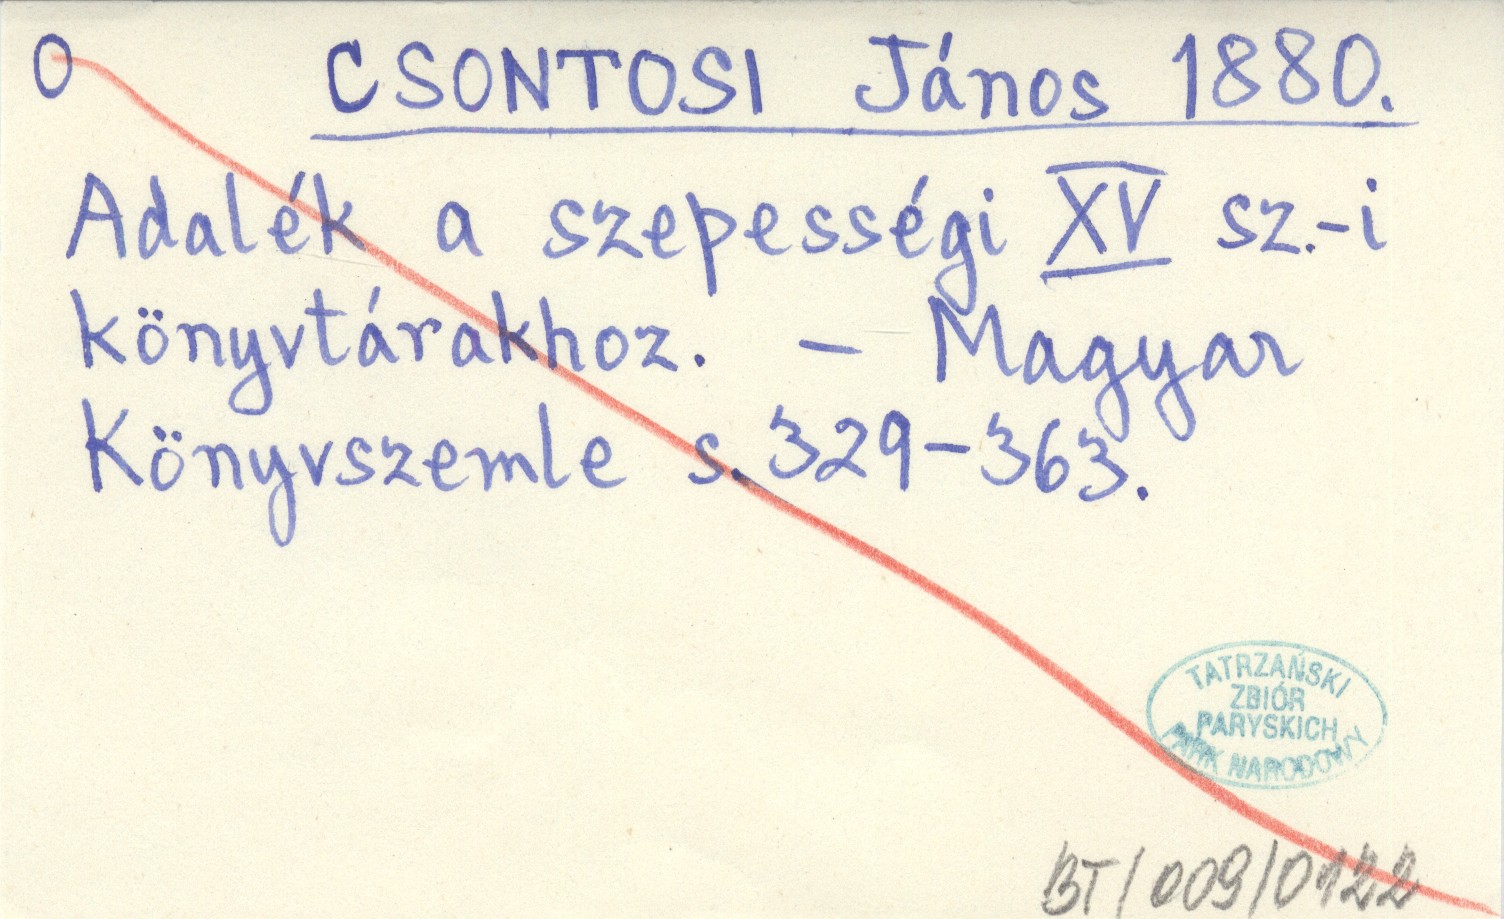 O CSONTOSI János 1880.
Adalék a szepességi XV sz.-i
könyvtárakhoz. – Magyar
Könyvszemle s. 329–363.
TATRZAŃSKI
ZBIÓR
PARYSKICH
PARK NARODOWY
BT/009/0122